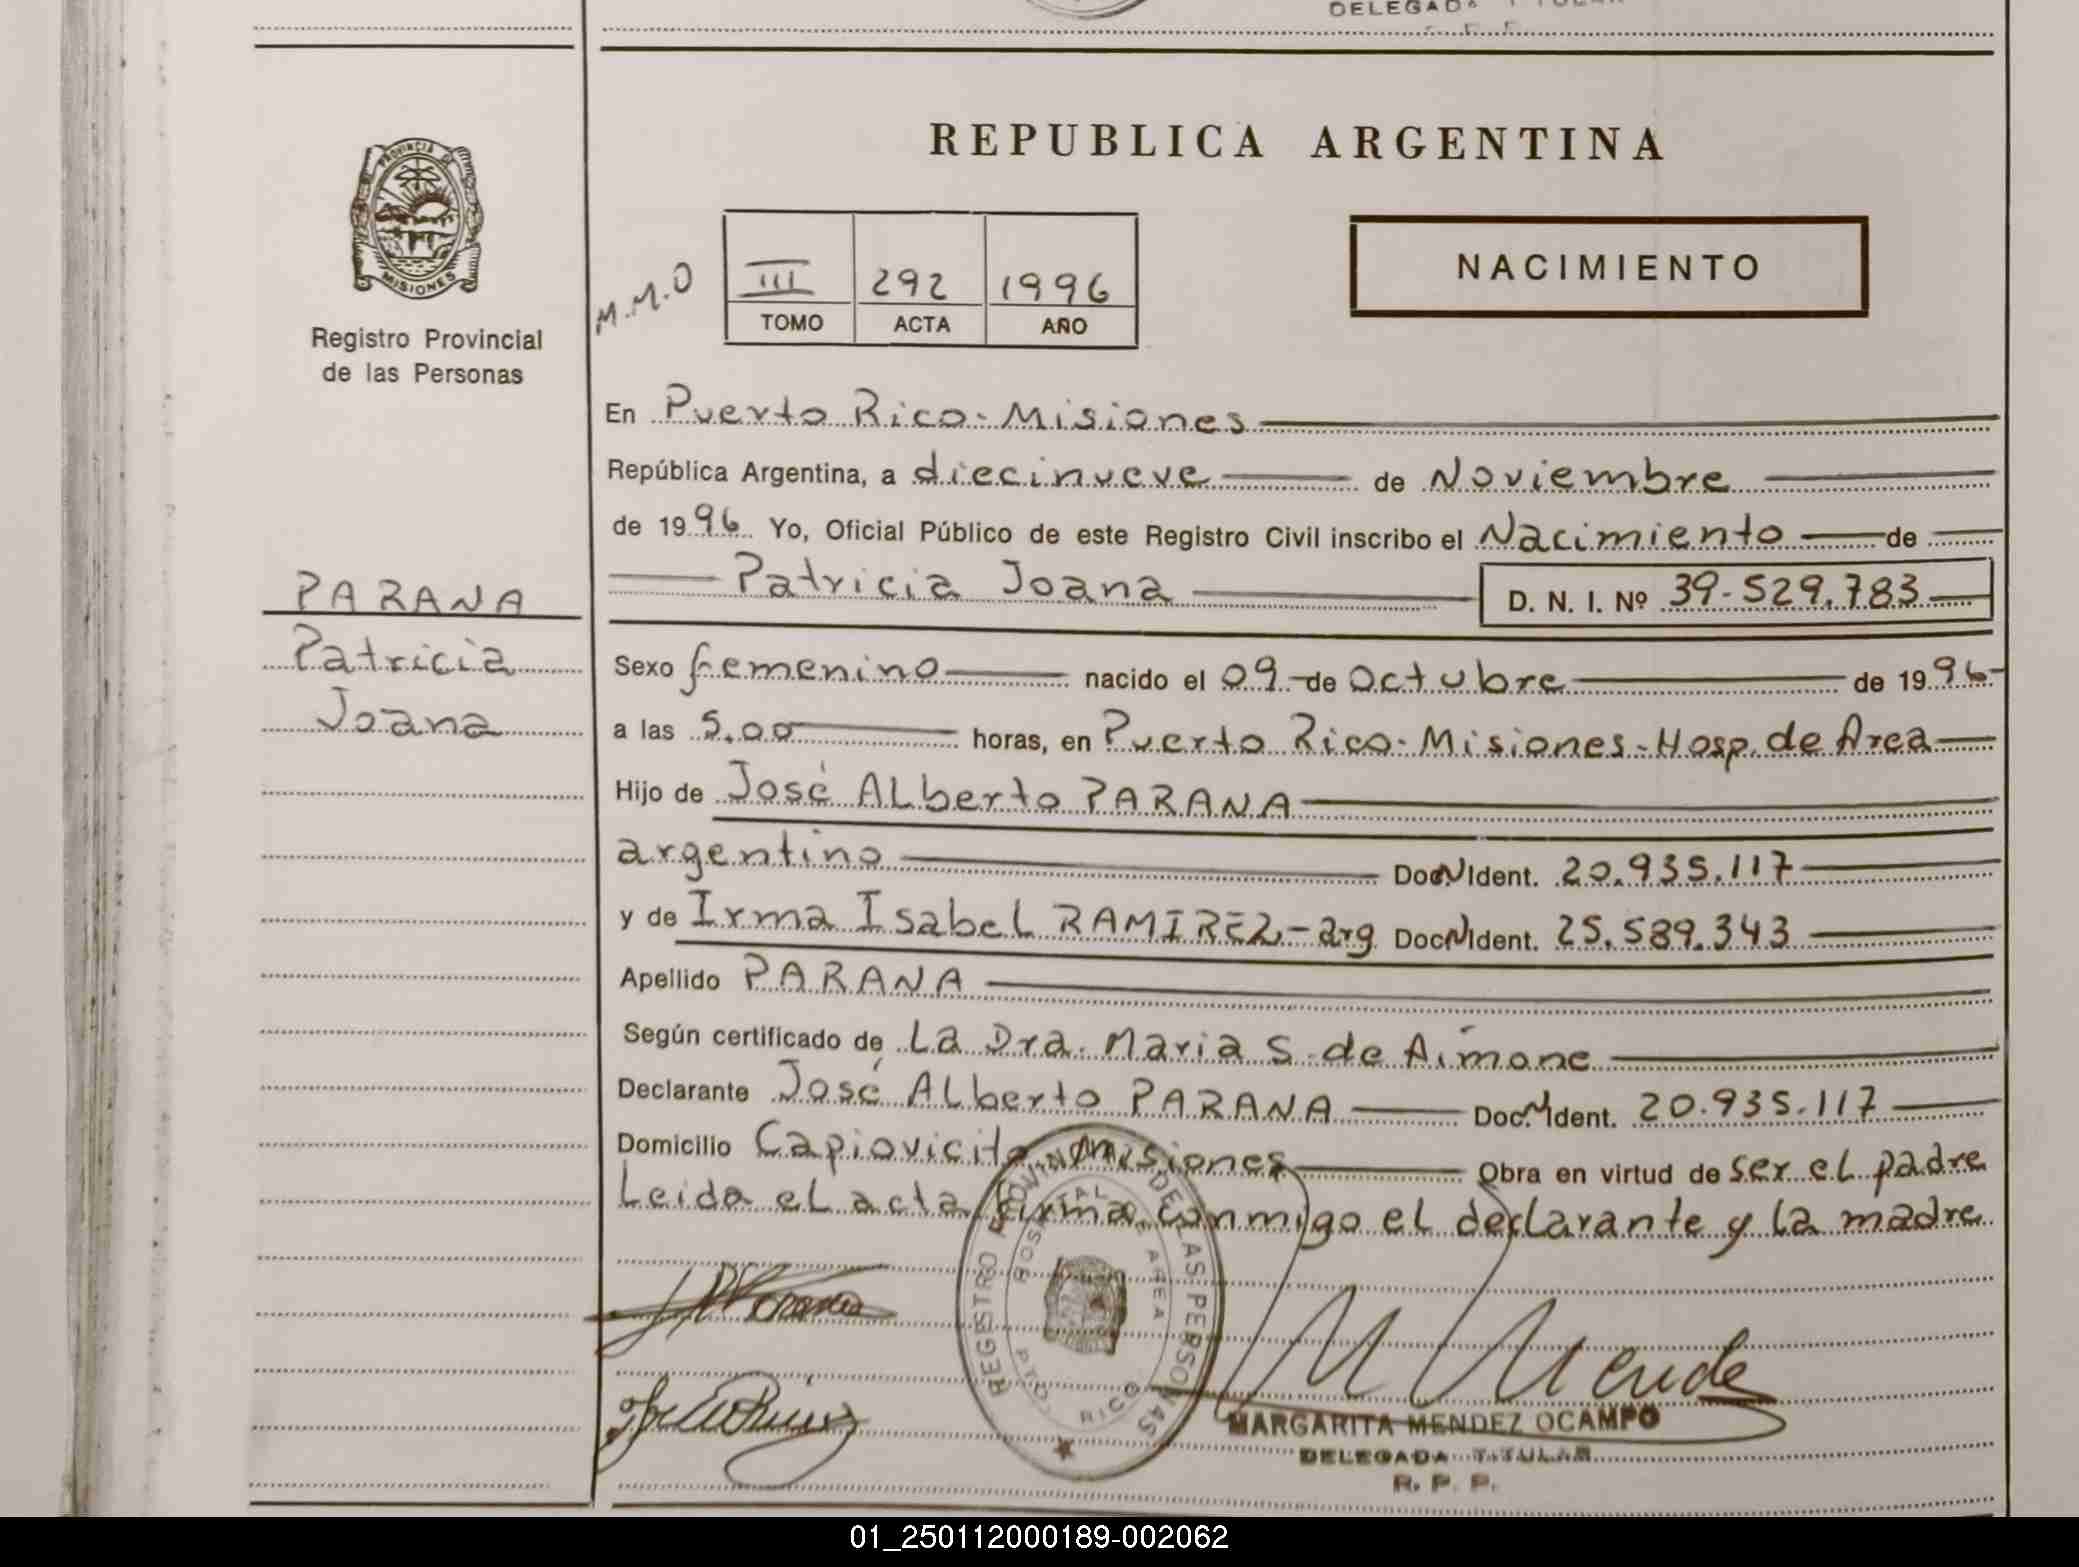 DELEGADA TITULAR
PROVINCIA DE
MISIONES
Registro Provincial
de las Personas
PARANA
Patricia
Joana
REPUBLICA ARGENTINA
M.M.O
III 292 1996
TOMO ACTA AÑO
NACIMIENTO
En Puerto Rico - Misiones
República Argentina, a diecinueve de Noviembre
de 1996 Yo, Oficial Público de este Registro Civil inscribo el Nacimiento de
Patricia Joana D. N. I. Nº 39.529.783
Sexo femenino nacido el 09 de Octubre de 1996
a las 5,00 horas, en Puerto Rico - Misiones - Hosp. de Area
Hijo de José Alberto PARANA
argentino Doc. N Ident. 20.935.117
y de Irma Isabel RAMIREZ - arg Doc. N Ident. 25.589.343
Apellido PARANA
Según certificado de La Dra. Maria S. de Aimone
Declarante José Alberto PARANA Doc. N Ident. 20.935.117
Domicilio Capiovicito - Misiones Obra en virtud de ser el padre
Leida el acta, firma conmigo el declarante y la madre
REGISTRO PROVINCIAL DE LAS PERSONAS
HOSPITAL DE AREA
PTO. RICO
M Mende
MARGARITA MENDEZ OCAMPO
DELEGADA TITULAR
R. P. P.
01_250112000189-002062